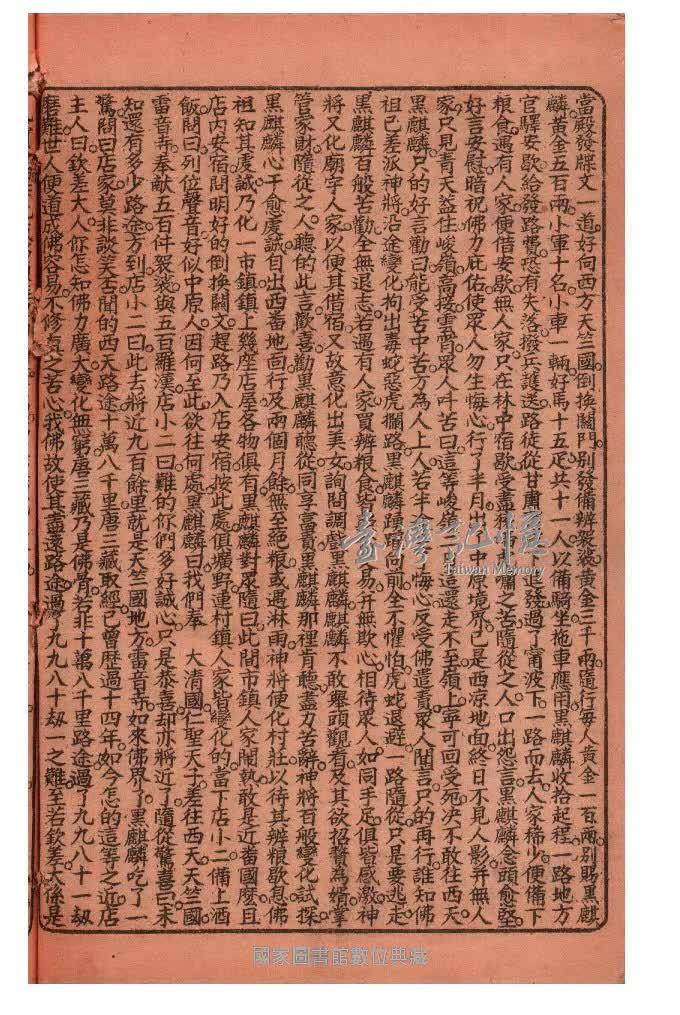 當殿發牒文一道好向西方天竺國倒換關門別發備辨袈裟黃金三千兩隨行每人黃金一百兩別賜黑麒
麟黃金五百兩小軍十名小車一輛好馬十五疋共十一人以備騎坐拖車應用黑麒麟收拾起程一路地方
官驛安歇給發路費恐有失落撥兵護送路徒從甘肅 退發過了甯波下一路而去人家稀少便備下
粮食遇有人家便借安歇無人家只在林中宿歇受盡 嘯之苦隨從之人口出怨言黑麒麟念頭愈堅
好言安慰暗祝佛力庇佑使眾人勿生悔心行了半月出 中原境界已是西凉地面終日不見人影并無人
家只見青天蓋住峻嶺高接雲霄眾人叫苦曰這等峻嶺 出這還走不至嶺上寧可回受死决不敢往西天
黑麒麟只的好言勸曰能受苦中苦方為人上人若半 悔心反受佛譴責眾人聞言只的再行誰知佛
祖已差派神將沿途變化拘出毒蛇惡虎攔路黑麒麟踴躍向前全不懼怕虎蛇退避一路隨從只是要逃走
黑麒麟百般苦勸全無退志若遇有人家買辨粮食皆 易并無欺心相待眾人如同手足俱皆感激神
將又化廟宇人家以便其借宿又故意化出美女詢問調戲黑麒麟麒麟不敢舉頭觀看及其欲招贅為婿掌
管家財隨從之人聽的此言歡喜勸黑麒麟聽從同享富貴黑麒麟那裡肯聽盡力苦辭神將百般變化試探
黑麒麟心千愈虔誠目出西番地面行及兩個月餘無至絕粮或遇林雨神將便化村莊以待其辨粮歇息佛
祖知其虔誠乃化一市鎮鎮上幾座店屋各物俱有黑麒麟對眾隨曰此間市鎮人家閙熱敢是近畨國麼且
店內安宿問明好的倒換關文趕路乃入店安宿按此處俱壙野連村鎮人家皆變化的當下店小二備上酒
飯問曰列位聲音好似中原人因何至此欲往何處黑麒麟曰我們奉 大清國仁聖天子差往西天天竺國
雷音寺奉献五百件袈裟與五百羅漢店小二曰難的你們多好誠心只是恭喜却亦將近了隨從驚喜曰未
知還有多少路途方到店小二曰此去將近九百餘里就是天竺國地方雷音寺如來佛界了黑麒麟吃了一
驚問曰店家莫非談笑否聞的西天路途十萬八千里唐三藏取經已曾歷過十四年如今怎的這等之近店
主人曰欽差大人你怎知佛力廣大變化無窮唐三藏乃是佛骨若非十萬八千里路途過了九九八十一劫
歷難世人便道成佛容易不修真之苦心我佛故使其盡遠路途過了九九八十劫一之難至若欽差大係是
臺灣記憶
Taiwan Memory
國家圖書館數位典藏